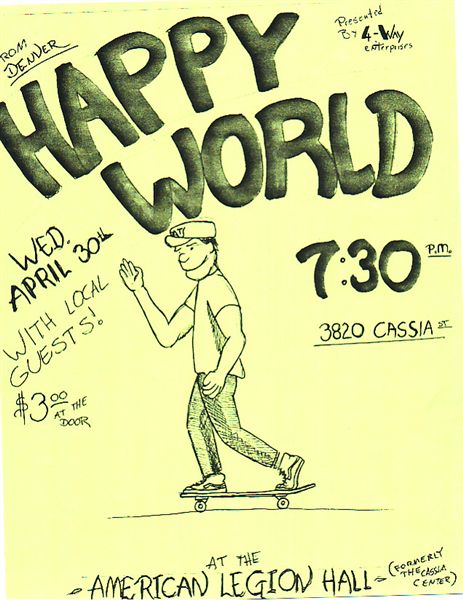 FROM
DENVER
Presented
By 4-Way
enterprises
HAPPY
WORLD
WED.
APRIL 30th
WITH LOCAL
GUESTS!
$3.00
AT THE
DOOR
7:30 P.M.
3820 CASSIA ST
AT THE
- AMERICAN LEGION HALL -
(FORMERLY
THE CASSIA
CENTER)